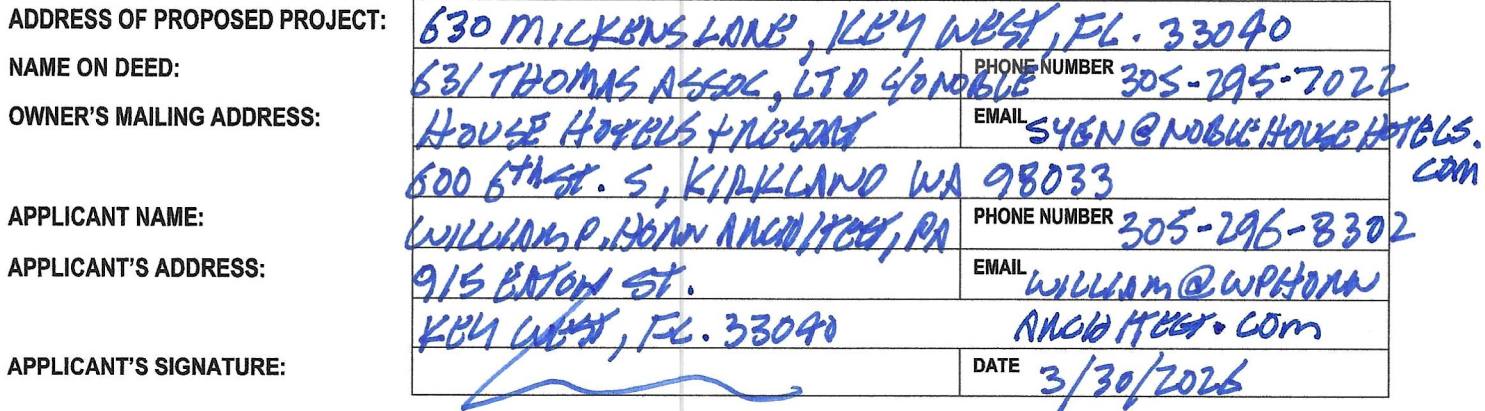 ADDRESS OF PROPOSED PROJECT: 630 MICKENS LANE, KEY WEST, FL. 33040
NAME ON DEED: 631 THOMAS ASSOC, LTD C/O NOBLE PHONE NUMBER 305-295-7022
OWNER'S MAILING ADDRESS: HOUSE HOTELS + RESORT EMAIL SYEN@NOBLEHOUSEHOTELS.
600 6th ST. S, KIRKLAND WA 98033 COM
APPLICANT NAME: WILLIAM P. HORN ARCHITECT, PA PHONE NUMBER 305-296-8302
APPLICANT'S ADDRESS: 915 EATON ST. EMAIL WILLIAM@WPHORN
KEY WEST, FL. 33040 ARCHITECT.COM
APPLICANT'S SIGNATURE: DATE 3/30/2026